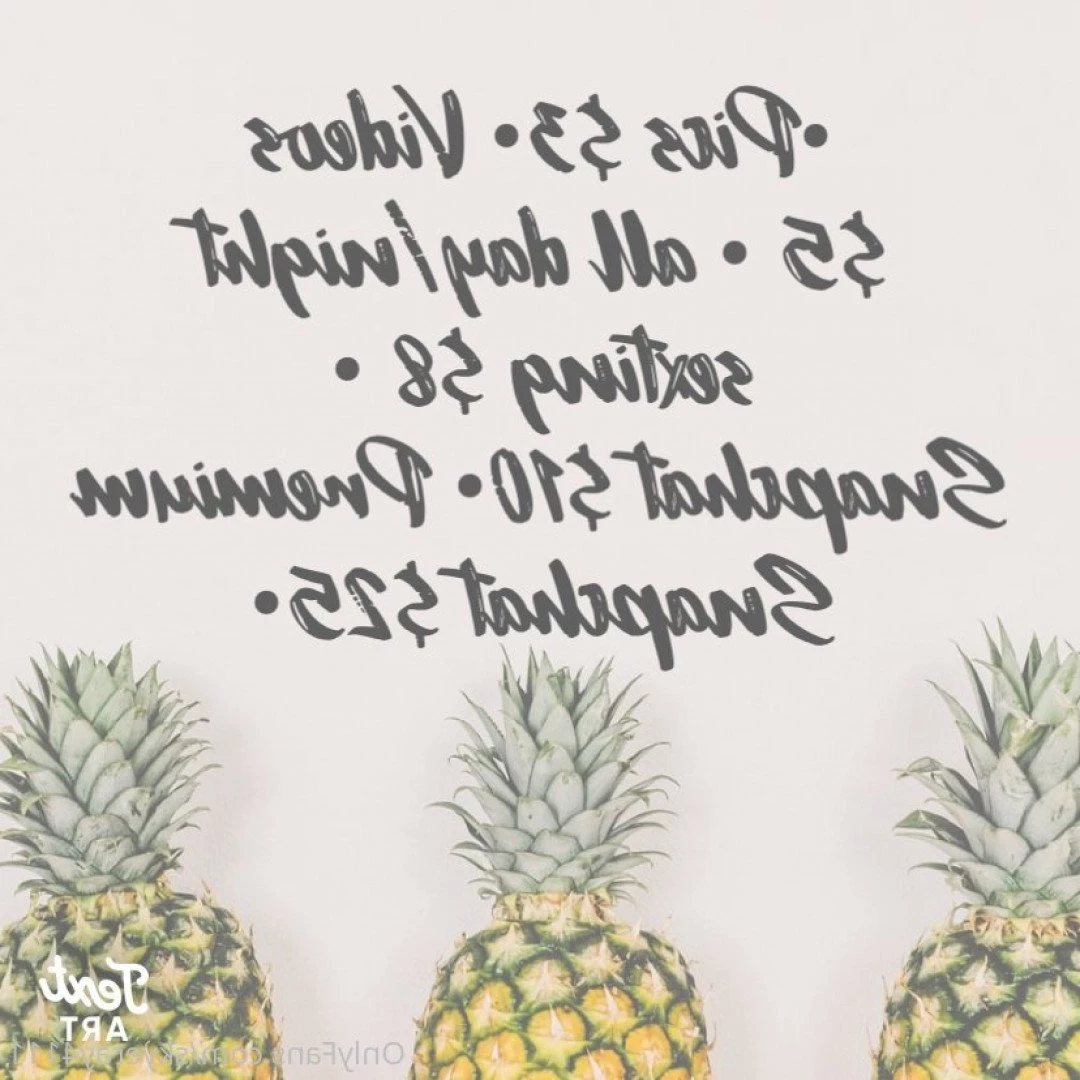 •Pics $3 • Videos
$5 • all day/night
sexting $8 •
Snapchat $10 • Premium
Snapchat $25•
Text
ART